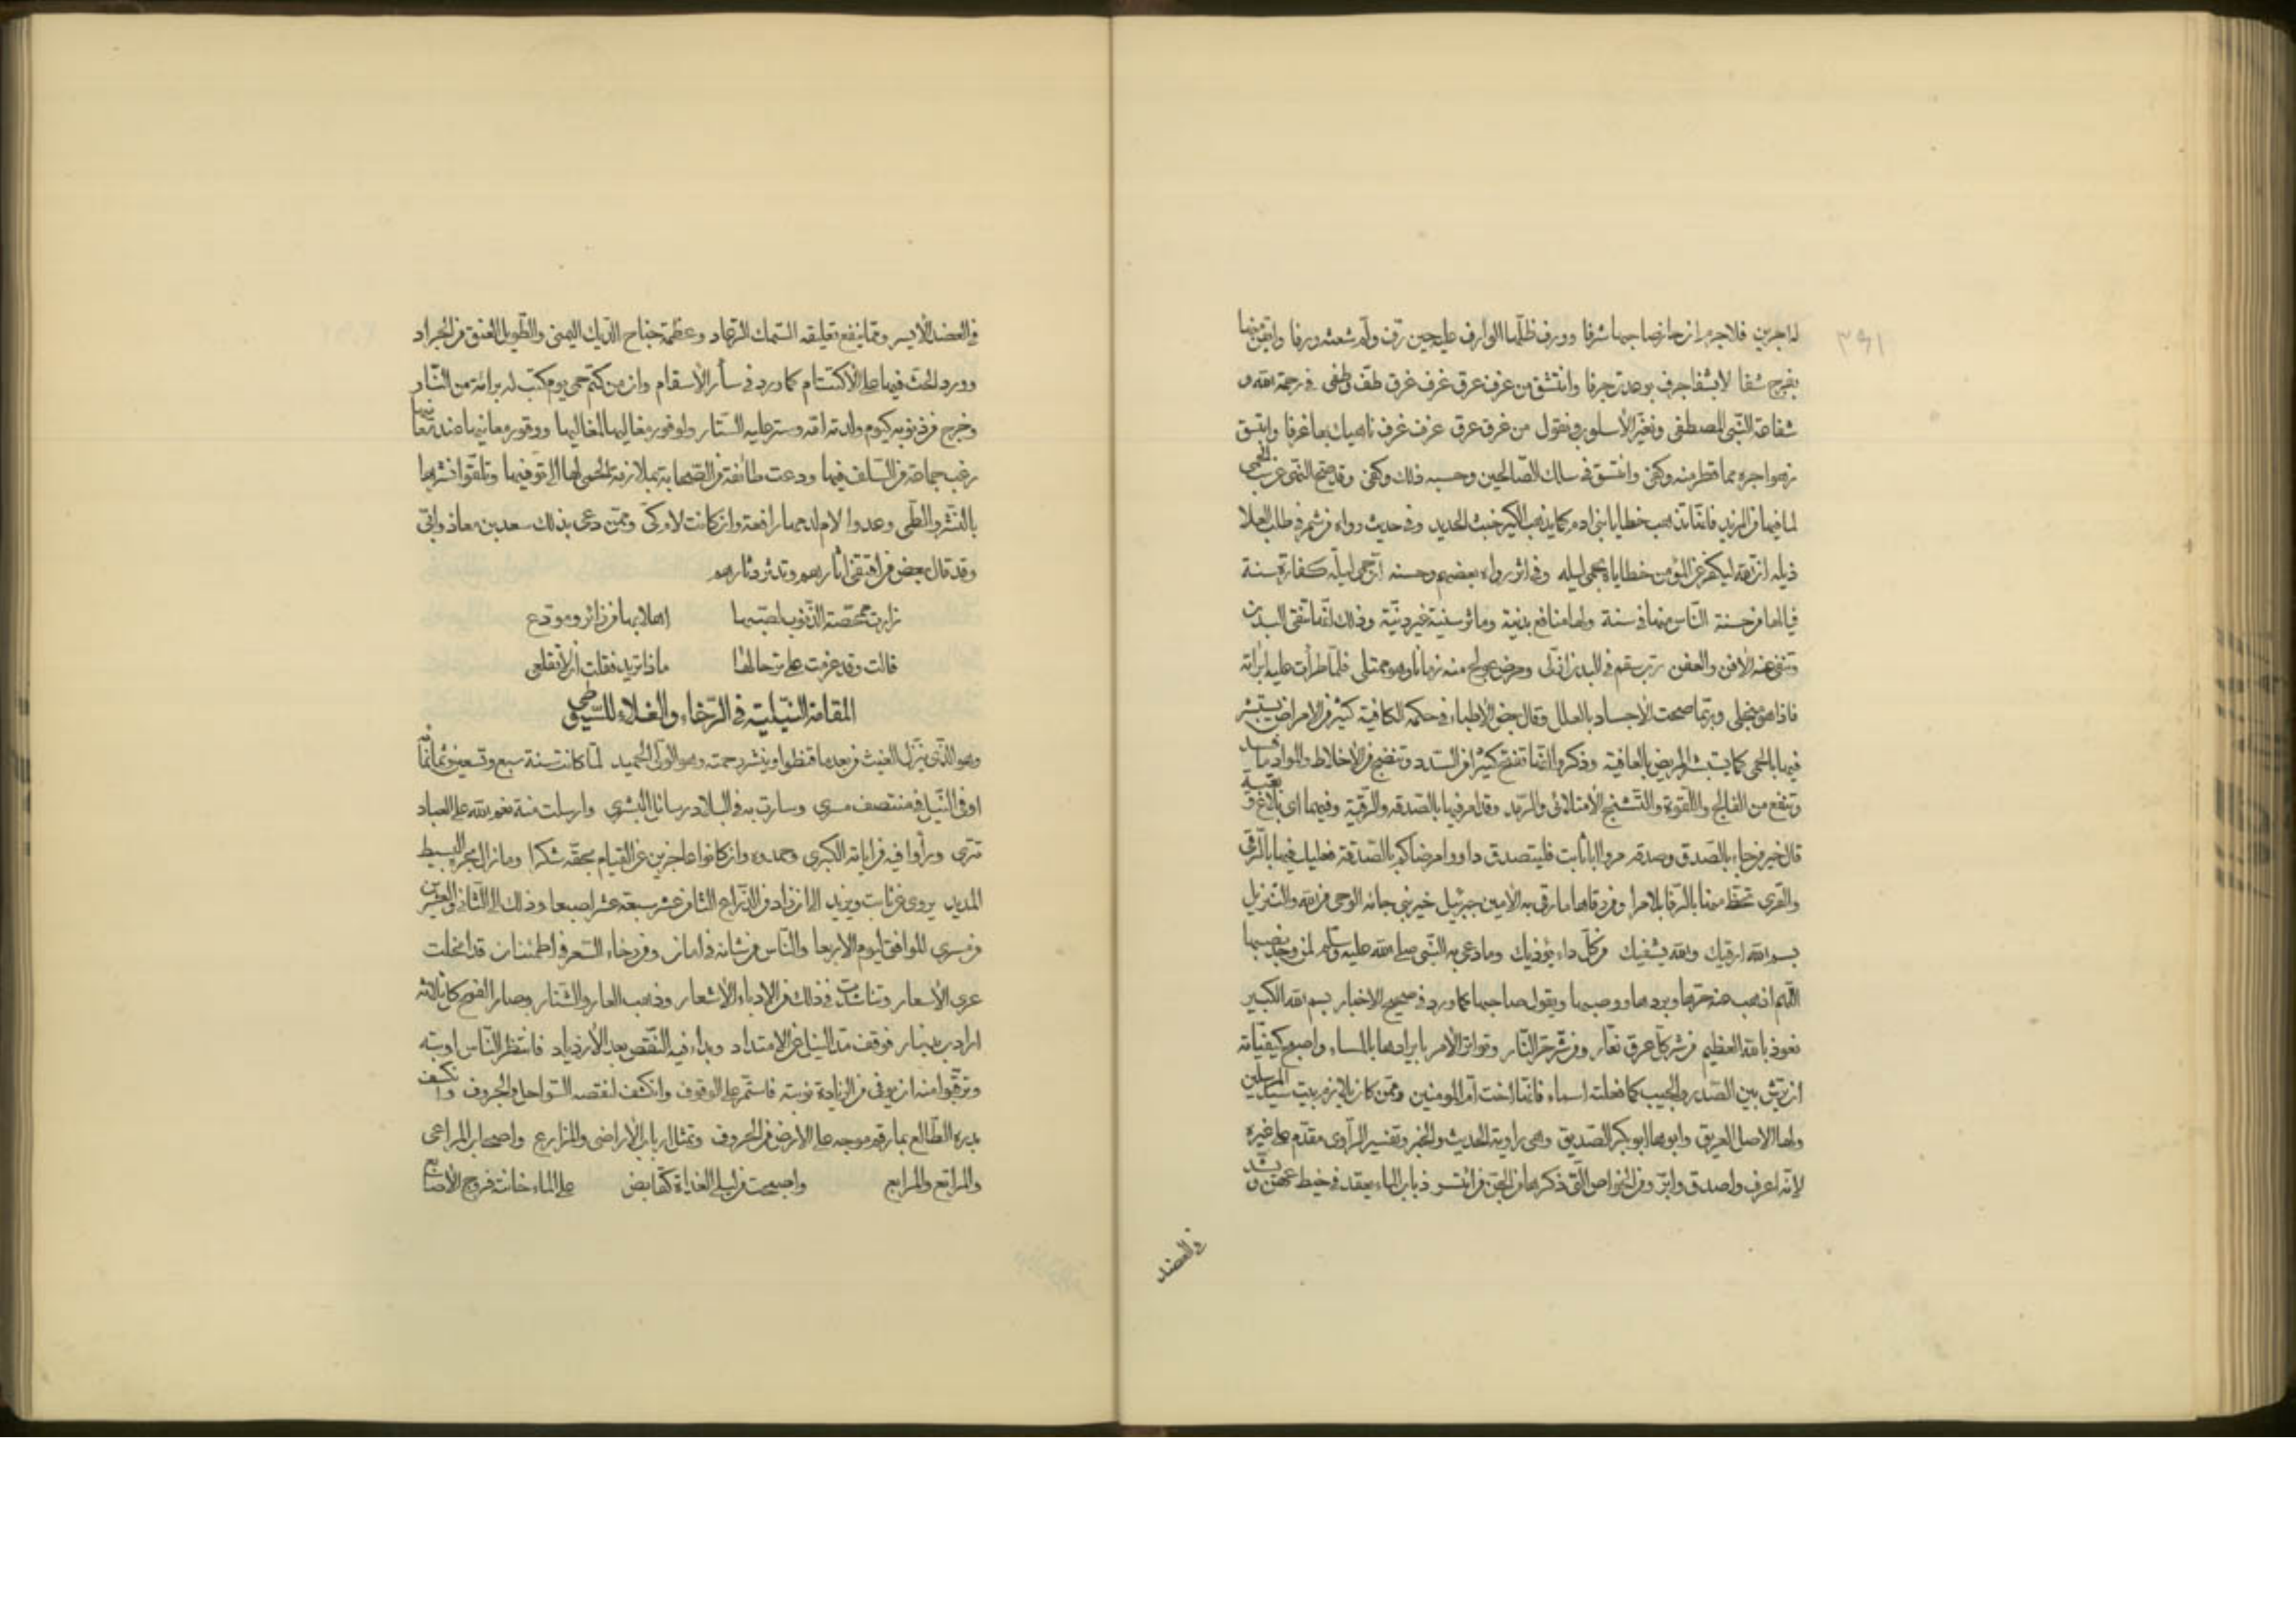 ٣٩١
له اجرين فلاجرم ان حاز صاحبها شرفا وورف ظلها الوارف على حين رق وله شعشه ورفا
بفرج شفا لا بشفا جرف بوعد ترجرفا وانتشق من عرف عرق غرف غرق طف وطفى في رحمة الله و
شفاعة النبي المصطفى ونغير الأسلوب ونقول من غرق عرق عرف غرف ناهيك بها غرفا واتسق
زهوا جره مما قطر منه وكفى وانتسق في سلك الصالحين وحسبه ذلك وكفى وقد صح النهى عن سب الحمى
لما فيها من المزيد فانها تذهب خطايا بني ادم كما يذهب الكير خبث الحديد وفي حديث رواه من شمر في طلب العلا
ذيله ان الله ليكفر عن المؤمن خطاياه بحمى ليله وفي اثر رواه بعضهم وحسنه ان حمى ليلة كفارة سنة
فيالها من حسنة الناس منها في سنة ولها منافع بدنية وماثر سنية غير دنية وذلك انها تنقى البدن
وتنفى عنه الأفن والعفن رب سقم في البدن ازلى ومرض عولج منه زمانا وهو ممتلى فلما طرأت عليه ابرأته
فاذا هو منجلى وربما صحت الأجساد بالعلل وقال بعض الأطباء في حكمه الكافية كثير من الامراض يستبشر
فيها بالحمى كما يستبشر المريض بالعافية وذكروا انها تفتح كثيرا من السدد وتنضج من الأخلاط والمواد ما فسد
وتنفع من الفالج واللقوة والتشنج الأمتلائى والرمد وقد امر فيها بالصدقه والرقية وفيهما اى بلاغ وبغية
قال خير من جاء بالصدق وصدقه مروا بالثابت فليتصدق داووا مرضاكم بالصدقة فعليك فيها بالرقى
والقرى تحظ منها بالرقا بلا مرا ومن رقاها ما رقى به الأمين جبرئيل خير نبي جائه الوحى من الله والتنزيل
بسم الله ارقيك والله يشفيك من كل داء يؤذيك وما دعى به النبي صلى الله عليه وسلم لمن وجد نصبها
اللهم اذهب عنه حرها وبردها ووصبها ويقول صاحبها كما ورد في صحيح الاخبار بسم الله الكبير
نعوذ بالله العظيم من شر كل عرق نعار ومن شر حر النار وتواتر الأمر بابرادها بالماء واصح كيفياته
ان ترش بين الصدر والجيب كما فعلته اسماء فانها اخت ام المومنين وممن كان يلازم بيت سيد المرسلين
ولها الاصل العريق وابوها ابو بكر الصديق وهى راوية الحديث والخبر وتفسير الراوى مقدم على غيره
لأنه اعرف واصدق وابر ومن الخواص التى ذكرها ذباب الماء يعقد في خيط عهن ويشد
في العضد
في العضد الأيسر ومما ينفع تعليقه السمك الرعاد وعظمة جناح الديك اليمنى والطويل العنق من الجراد
وورد الحث فيها على الأكتتام كما ورد في سائر الأسقام وان من كتم حمى يوم كتب له برائة من النار
وخرج من ذنوبه كيوم ولدته امه وستر عليه الستار ولوفور مغاليها لمغاليها
رغب جماعة من السلف فيها ودعت طائفة من الصحابة بملازمة الحمى لها الى توفيها وتلقوا نشرها
بالنشر والطى وعدوا لام لدمها رافعة وان كانت لام كى وممن دعى بذلك سعد بن معاذ وابى
وقد قال بعض من اقتفى اثارهم وتدثر دثارهم
زارت ممحصة الذنوب لصبها اهلا بها من زائر ومودع
قالت وقد عزمت على ترحالها ماذا تريد فقلت ان لا تقلعى
المقامة النيلية في الرخاء والغلاء للسيوطى
وهو الذى ينزل الغيث من بعد ما قنطوا وينشر رحمته وهو الولى الحميد لما كانت سنة سبع وتسعين وثمانمائة
اوفى النيل في منتصف مسرى وسارت به في البلاد رسائل البشرى وارسلت منة نعم الله على العباد
تترى وراوا فيه من اياته الكبرى وحمدوه وان كانوا عاجزين عن القيام بحقه شكرا وما زال بحره البسيط
المديد يروى عن ثابت ويزيد الى ان زاد من الذراع الثامن عشر سبعة عشر اصبعا وذلك الى الثانى والعشرين
من مسرى الموافق ليوم الاربعا والناس من شانه في امان ومن رخاء السعر في اطمئنان قد انحلت
عرى الأسعار وتناشدت في ذلك من الادباء الأشعار وذهب العار والشنار وصار القمح كل ثلاثة
ارادب بدينار فوقف مد النيل عن الامتداد وبداء فيه النقص بعد الأزدياد فانتظر الناس اوبته
وترقبوا منه ان يوفى من الزيادة نوبته فاستمر على الوقوف وانكشف لنقصه السواحل والجروف وانكسف
بدره الطالع بما رقم موجه على الارض من الحروف وتمثل ارباب الأراضى والمزارع واصحاب المراعى
والمراتع والمرابع واصبحت من ليلى الغداة كقابض على الماء خانته فروج الأصابع